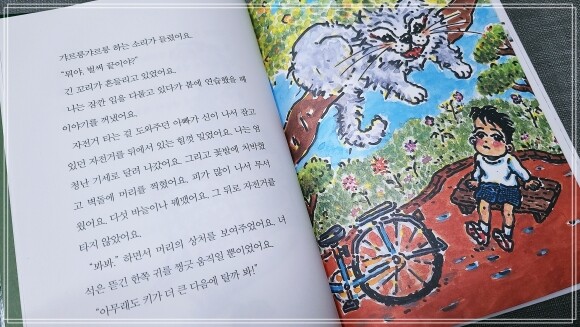 갸르릉갸르릉 하는 소리가 들렸어요.
"뭐야, 벌써 끝이야?"
긴 꼬리가 흔들리고 있었어요.
나는 잠깐 입을 다물고 있다가 봄에 연습했을 때
이야기를 꺼냈어요.
자전거 타는 걸 도와주던 아빠가 신이 나서 잡고
있던 자전거를 뒤에서 있는 힘껏 밀었어요. 나는 엄
청난 기세로 달려 나갔어요. 그리고 꽃밭에 처박혔
고 벽돌에 머리를 찍혔어요. 피가 많이 나서 무서
웠어요. 다섯 바늘이나 꿰맸어요. 그 뒤로 자전거를
타지 않았어요.
"봐봐." 하면서 머리의 상처를 보여주었어요. 녀
석은 뜯긴 한쪽 귀를 쫑긋 움직일 뿐이었어요.
"아무래도 키가 더 큰 다음에 탈까 봐!"